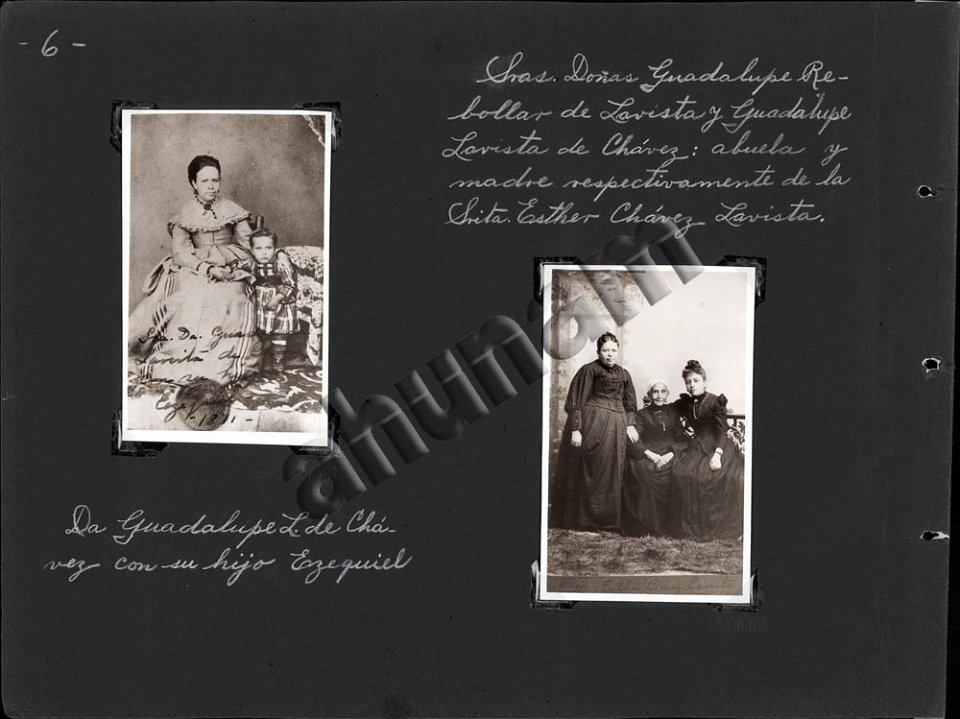 - 6 -
Sras. Doñas Guadalupe Re-
bollar de Lavista y Guadalupe
Lavista de Chávez: abuela y
madre respectivamente de la
Srita. Esther Chávez Lavista.
Sra. Da. Gua
Lavista de
ahunam
Da Guadalupe L. de Chá-
vez con su hijo Ezequiel